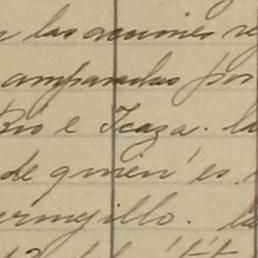 las acciones re
amparadas por
Rio e Icaza. la
de quien es.
ermejillo. la